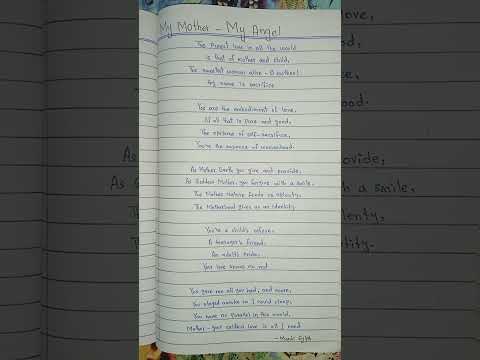 My Mother - My Angel
The Purest love in all the world
is that of mother and child,
The sweetest woman alive - O mother!
thy name is sacrifice
You are the embodiment of love,
Of all that is pure and good,
The epitome of self-sacrifice,
You're the essence of womanhood.
As Mother Earth you give and provide,
As Goddess Mother, you forgive with a smile,
The Mother Nature feeds us aplenty,
The Motherland gives us an identity.
You're a child's refuge,
A teenager's friend,
An adult's pride,
Your love knows no end
You gave me all you had, and more,
You stayed awake so I could sleep,
You have no parallel in this world,
Mother - your selfless love is all I need